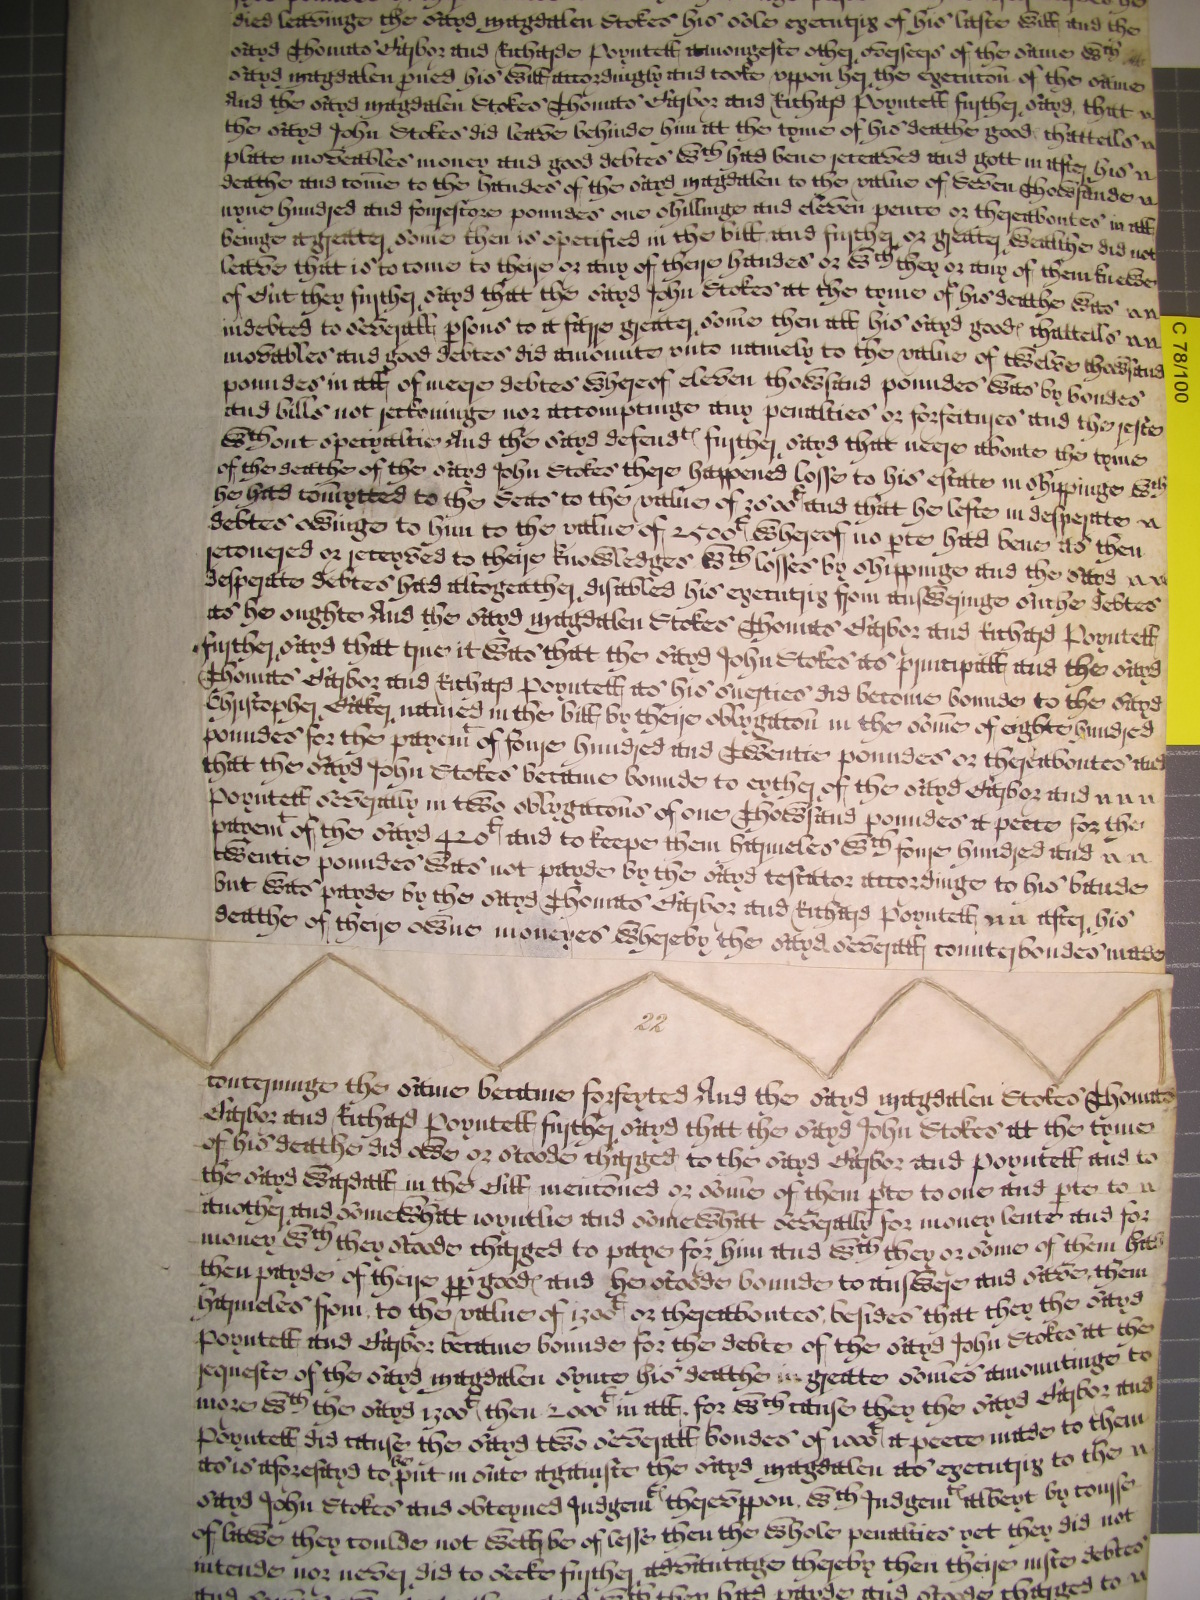 died leavinge the sayd Magdalen Stokes his sole executrix of his laste Will and the
sayd Thomas and Richarde Poyntell amongeste other overseers of the same wch
sayd Magdalen pved his Will accordingly and tooke uppon her the execucon of the same
And the sayd Magdalen Stokes Thomas and Richard Poyntell further sayd, that
the sayd John Stokes did leave behinde him att the tyme of his deathe good chattells
plate moveables money and good debtes wch had bene receaved and gott in after his
deathe and come to the handes of the sayd Magdalen to the value of Seven Thowsande
nyne hundred and fourescore poundes one shillinge and eleven pence or thereaboutes in all
beinge a greater some then is specified in the bill and further or greater wealthe did not
leave that is to come to theire or any of theire handes or wch they or any of them knewe
of But they further sayd that the sayd John Stokes at the tyme of his deathe was
indebted to severall psons to a farre greater some then all his sayd good chattells
movables and good debtes did amounte unto namely to the value of twelve thowsand
poundes in all of meere debtes whereof eleven thowsand poundes was by bondes
and bills not reckoninge nor accomptinge any penalties or forfeitures and the reste
wthout specyaltie And the sayd defendts further sayd that neere aboute the tyme
of the deathe of the sayd John Stokes there happened losse to his estate in shippinge wch
he had comytted to the Seas to the value of 3500l and that he lefte in desperate
debtes owinge to him to the value of 2500l whereof no pte had bene as then
recovered or receyved to theire knowledges wch losses by shippinge and the sayd
desperate debtes had altogeather disabled his executrix from answeringe suche debtes
as he oughte And the sayd Magdalen Stokes Thomas and Richard Poyntell
further sayd that true it was that the sayd John Stokes as principall and the sayd
Thomas and Richard Poyntell as his suerties did become bounde to the sayd
Christopher named in the bill by theire oblygacon in the some of eighte hundred
poundes for the payemt of foure hundred and Twentie poundes or thereaboutes and
that the sayd John Stokes became bounde to eyther of the sayd and
Poyntell severally in two oblygacons of one Thowsand poundes a peece for the
payemt of the sayd 420l and to keepe them harmeles wch foure hundred and
twentie poundes was not payde by the sayd testator accordinge to his bande
but was payde by the sayd Thomas and Richard Poyntell after his
deathe of theire owne moneyes whereby the sayd severall counterbondes made
22
concerninge the same became forfeyted And the sayd Magdalen Stokes Thomas
and Richard Poyntell further sayd that the sayd John Stokes att the tyme
of his deathe did owe or stoode charged to the sayd and Poyntell and to
the sayd Wardall in the Bill mencioned or some of them pte to one and pte to
another and somewhatt ioyntlie and somewhat severally for money lente and for
money wch they stoode charged to paye for him and wch they or some of them had
then payde of theire ppr good and he stoode bounde to answere and save them
harmeles from to the value of 1300l or thereaboutes besides that they the sayd
Poyntell and became bounde for the debte of the sayd John Stokes at the
requeste of the sayd Magdalen synce his deathe in greate somes amountinge to
more wth the sayd 1300l then 2000l in all for wch cause they the sayd and
Poyntell did cause the sayd two severall bondes of 1000l a peece made to them
as is aforesayd to be put in sute againste the sayd Magdalen as executrix to the
sayd John Stokes and obteyned Judgemts thereuppon wch Judgemts albeyt by course
of lawe they coulde not well be of lesse then the whole penalties yet they did not
intende nor never did to seeke further advantage thereby then theire iuste debtes
wch they had payde and stoode charged to